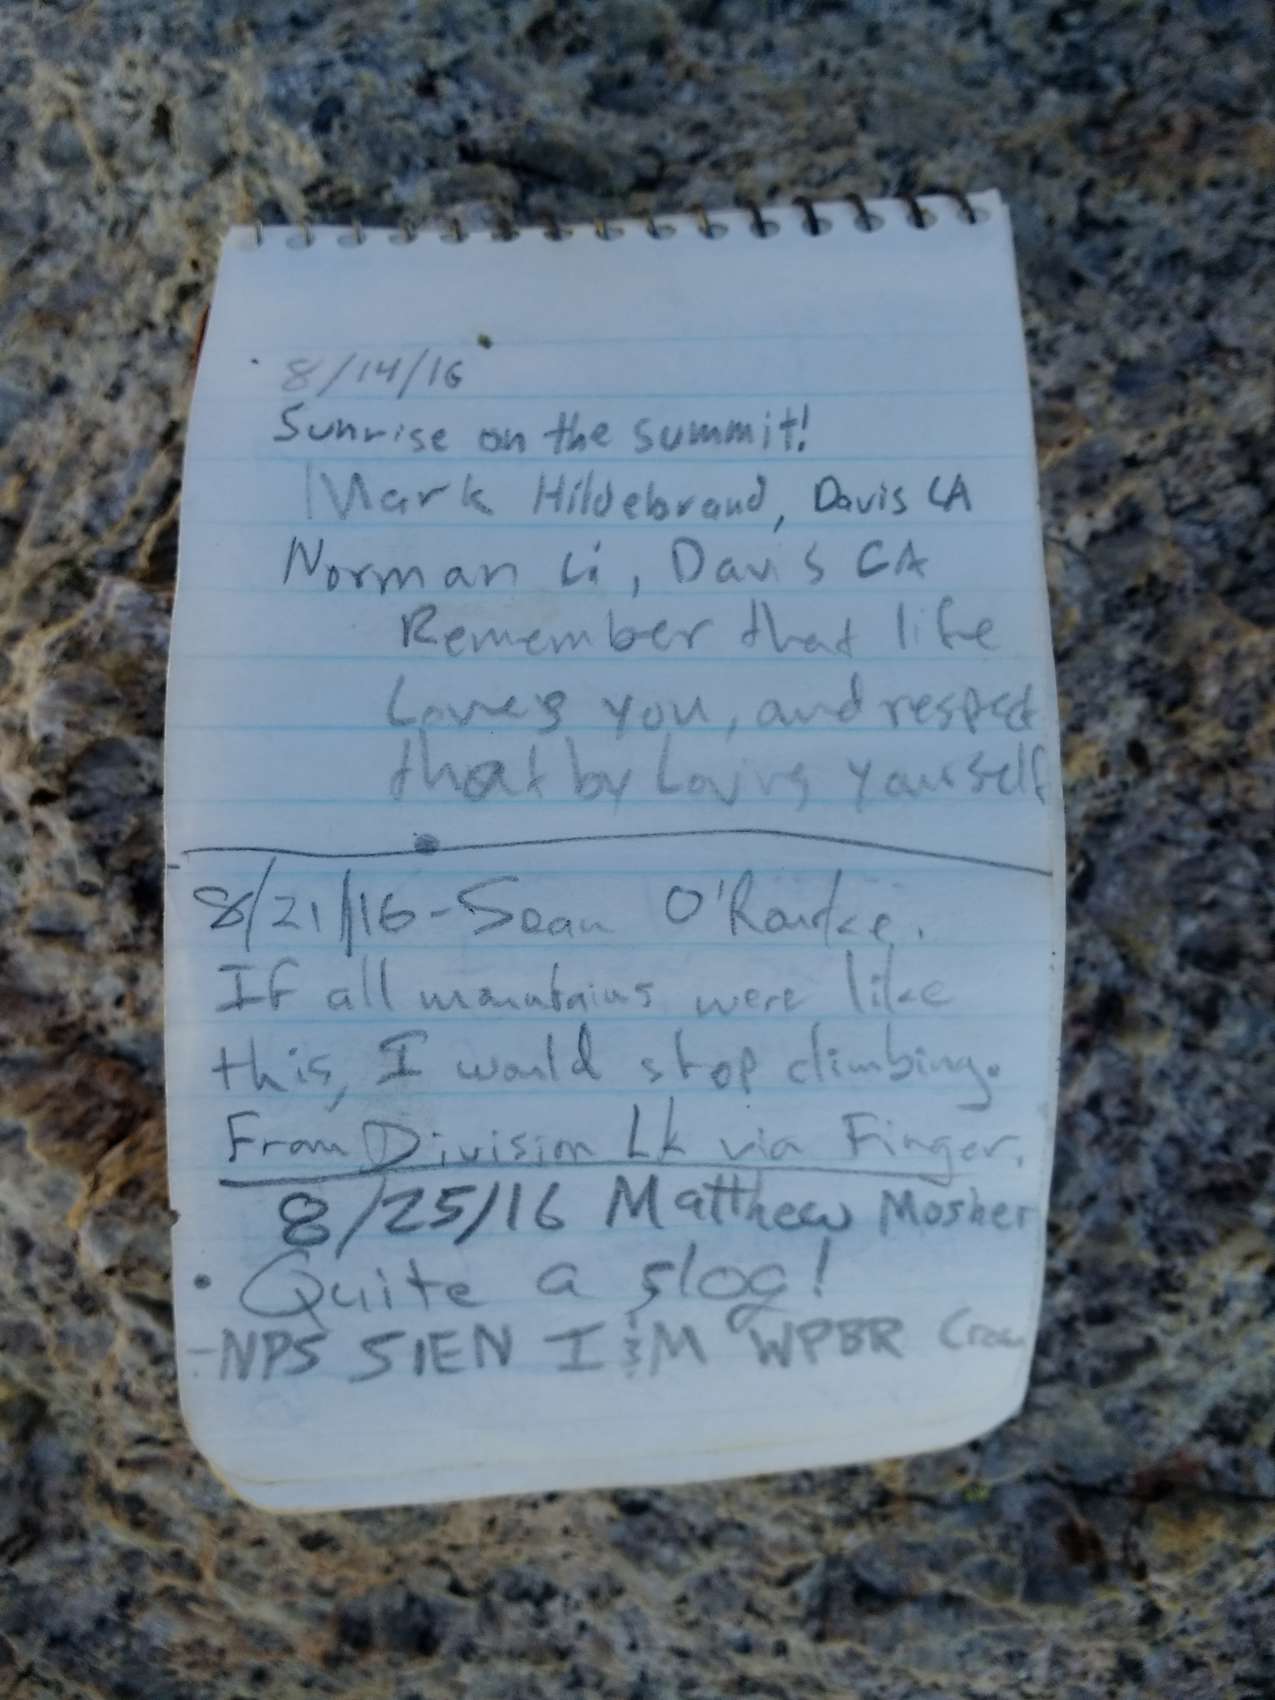 8/14/16
Sunrise on the summit!
Mark Hildebrand, Davis CA
Norman Li, Davis CA
Remember that life
Loves you, and respect
that by Loving yourself
8/21/16 - Sean O'Rourke.
If all mountains were like
this, I would stop climbing.
From Division Lk via Finger.
8/25/16 Matthew Mosher
• Quite a slog!
- NPS SIEN I & M WPBR Crew